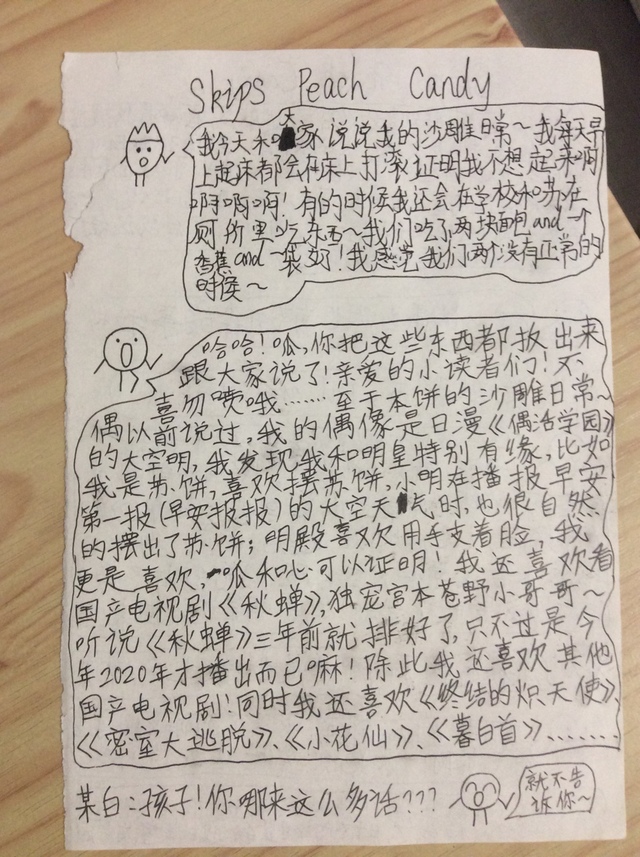 Skips Peach Candy
我今天和大家说说我的沙雕日常～我每天早
上起床都会在床上打滚,证明我不想起来啊
啊啊啊!有的时候我还会在学校和苏在
厕所里吃东西～我们吃了两块面包and一个
香蕉and一袋奶!我感觉我们两个没有正常的
时候～
哈哈!呱,你把这些东西都扳出来
跟大家说了!亲爱的小读者们!不
喜勿喷哦……至于本饼的沙雕日常～
偶以前说过,我的偶像是日漫《偶活学园》
的大空明,我发现我和明皇特别有缘,比如
我是苏·饼,喜欢摆苏·饼,小明在播报早安
第一报(早安报报)的大空天气时,也很自然
的摆出了苏·饼;明殿喜欢用手支着脸,我
更是喜欢,呱和心可以证明!我还喜欢看
国产电视剧《秋蝉》,独宠宫本苍野小哥哥～
听说《秋蝉》三年前就排好了,只不过是今
年2020年才播出而已嘛!除此,我还喜欢其他
国产电视剧!同时我还喜欢《终结的炽天使》
《密室大逃脱》、《小花仙》、《暮白首》………
某白:孩子!你哪来这么多话???
就不告
诉你～